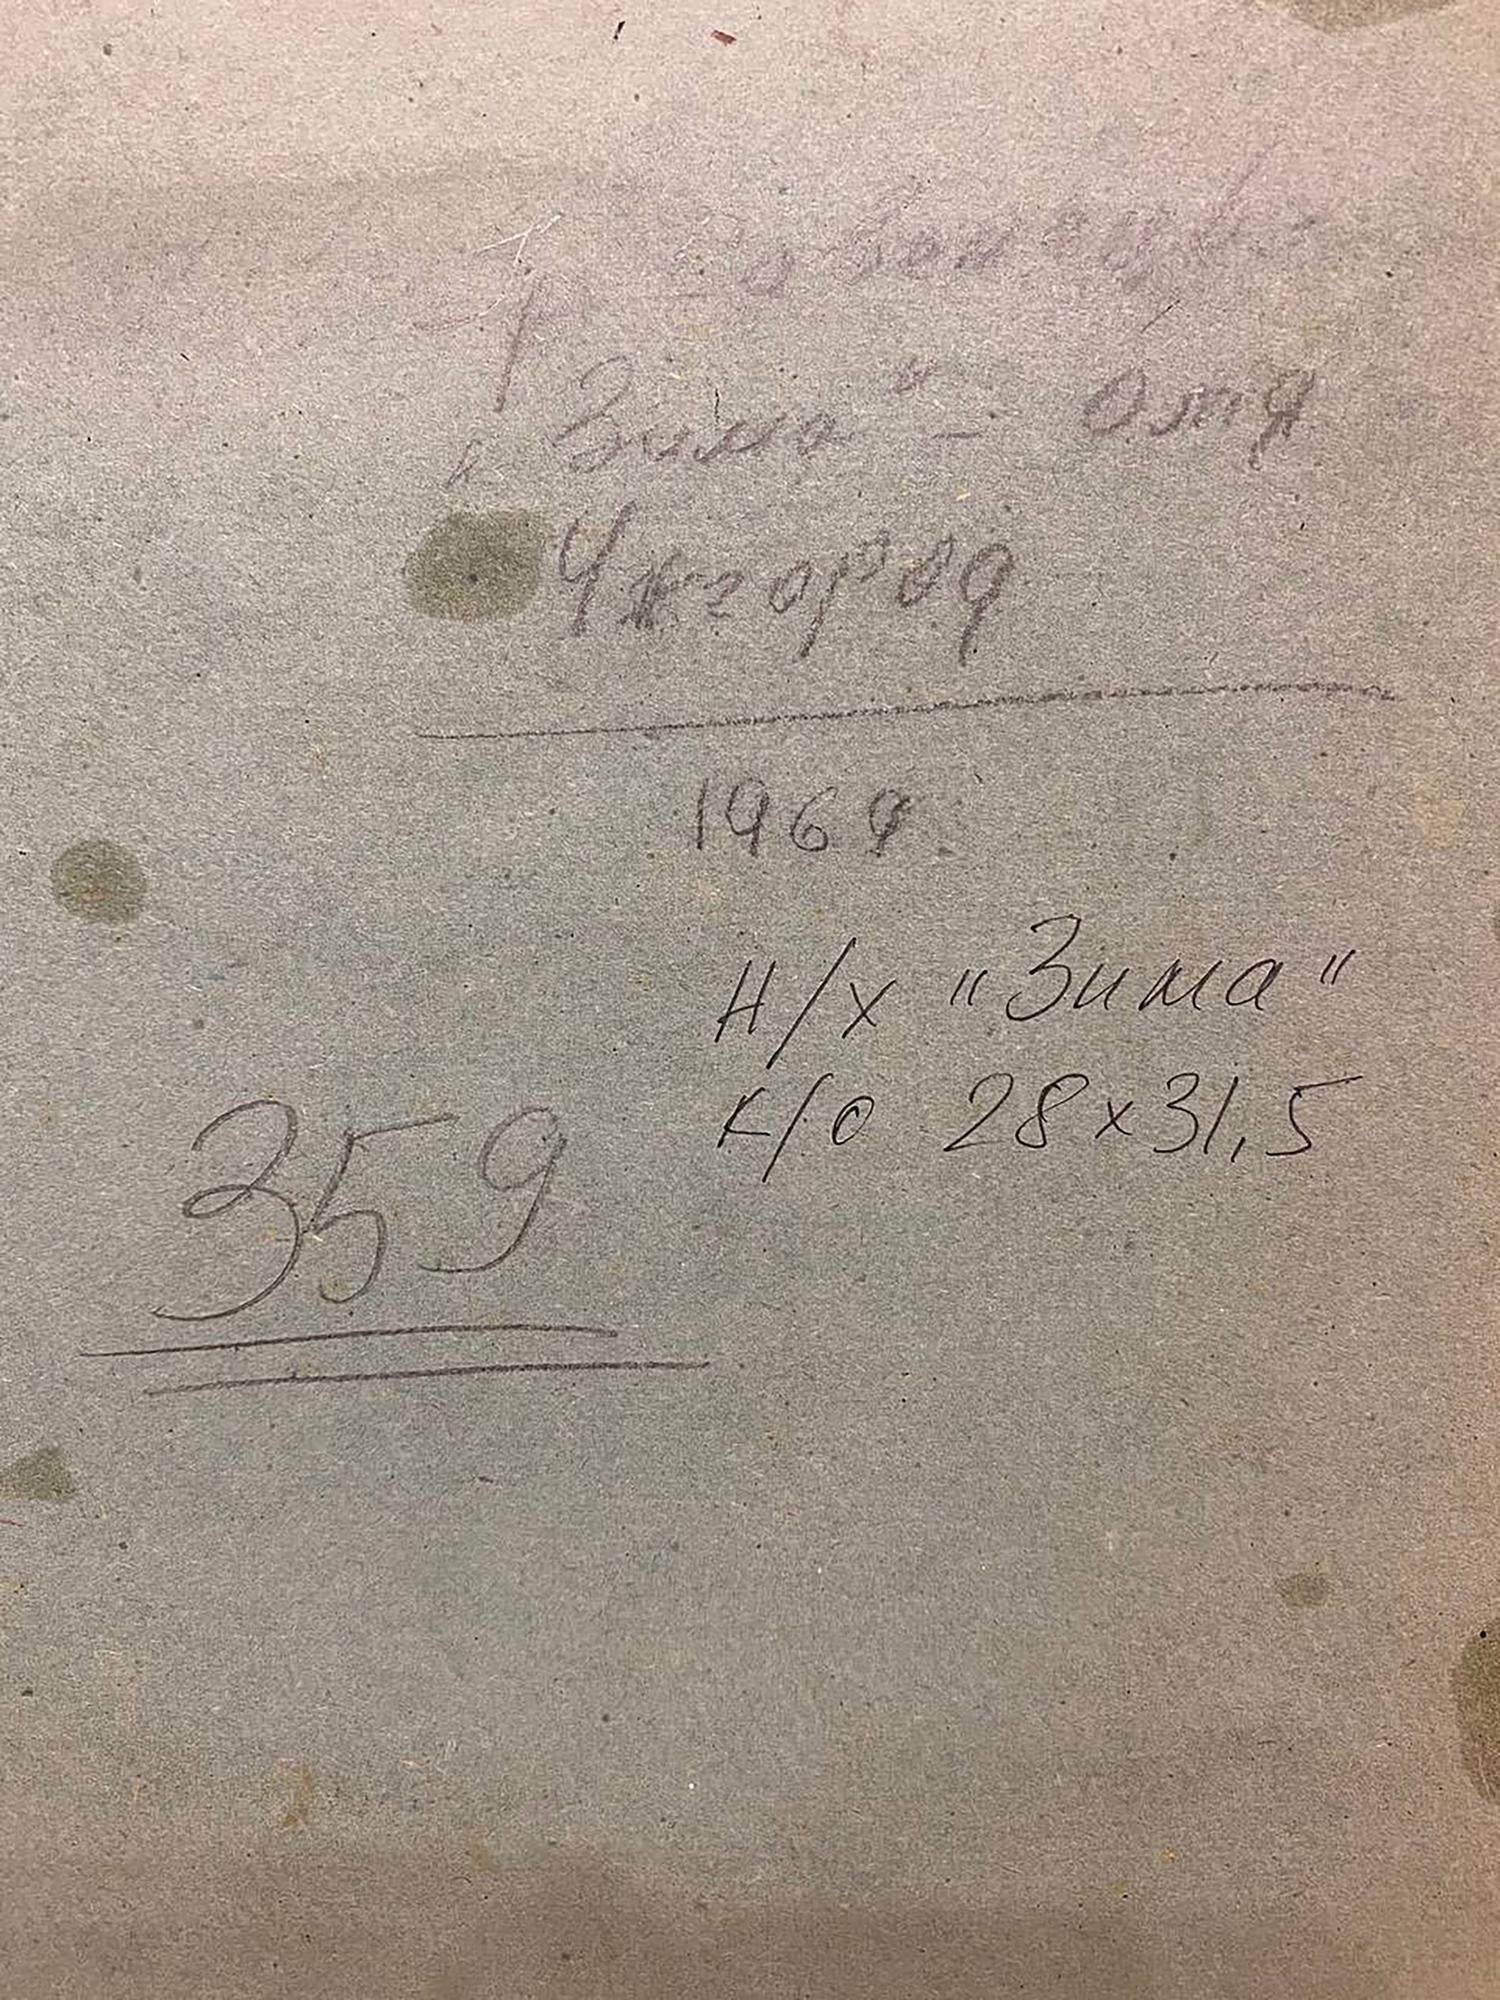 „Зима“ – олія
Ужгород
1969.
Н/х "Зима"
К/о 28х31,5
359